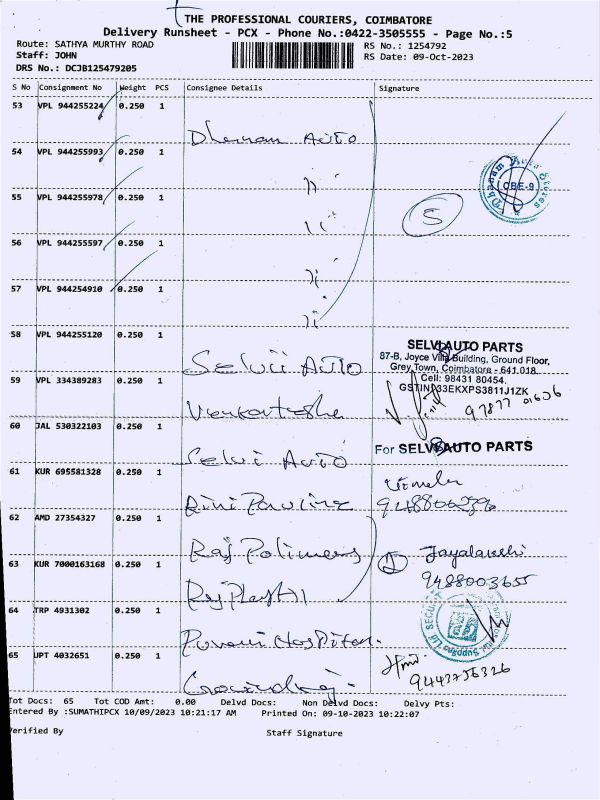 THE PROFESSIONAL COURIERS, COIMBATORE
Delivery Runsheet - PCX - Phone No.:0422-3505555 - Page No.:5
Route: SATHYA MURTHY ROAD RS No.: 1254792
Staff: JOHN RS Date: 09-Oct-2023
DRS No.: DCJB125479205
S No Consignment No Weight PCS Consignee Details Signature
53 VPL 944255224 0.250 1
Auto
54 VPL 944255993 0.250 1
55 VPL 944255978 0.250 1
CBE-9
5
56 VPL 944255597 0.250 1
57 VPL 944254910 0.250 1
58 VPL 944255120 0.250 1
Selvii Auto
SELVI AUTO PARTS
87-B, Joyce Villa Building, Ground Floor,
Grey Town, Coimbatore - 641 018.
Cell: 98431 80454.
GSTIN: 33EKXPS3811J1ZK
59 VPL 334389283 0.250 1
97877 01636
60 JAL 530322103 0.250 1
Selvi Auto
For SELVI AUTO PARTS
61 KUR 695581328 0.250 1
62 AMD 27354327 0.250 1
Raj Polimers
63 KUR 7000163168 0.250 1
9488003655
64 TRP 4931302 0.250 1
Hospital.
65 UPT 4032651 0.250 1
9443756326
Tot Docs: 65 Tot COD Amt: 0.00 Delvd Docs: Non Delvd Docs: Delvy Pts:
Entered By :SUMATHIPCX 10/09/2023 10:21:17 AM Printed On: 09-10-2023 10:22:07
Verified By Staff Signature